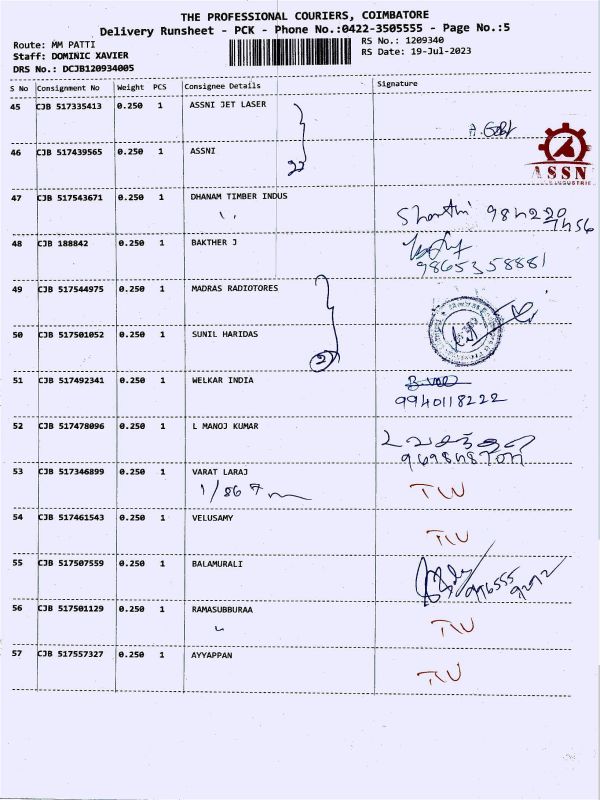 THE PROFESSIONAL COURIERS, COIMBATORE
Delivery Runsheet - PCK - Phone No.:0422-3505555 - Page No.:5
Route: MM PATTI RS No.: 1209340
Staff: DOMINIC XAVIER RS Date: 19-Jul-2023
DRS No.: DCJB120934005
S No Consignment No Weight PCS Consignee Details Signature
45 CJB 517335413 0.250 1 ASSNI JET LASER
ASSN
46 CJB 517439565 0.250 1 ASSNI
47 CJB 517543671 0.250 1 DHANAM TIMBER INDUS
Shanthi 984220
7456
48 CJB 188842 0.250 1 BAKTHER J
9865358881
49 CJB 517544975 0.250 1 MADRAS RADIOTORES
50 CJB 517501052 0.250 1 SUNIL HARIDAS
51 CJB 517492341 0.250 1 WELKAR INDIA
9940118222
52 CJB 517478096 0.250 1 L MANOJ KUMAR
53 CJB 517346899 0.250 1 VARAT LARAJ
54 CJB 517461543 0.250 1 VELUSAMY
55 CJB 517507559 0.250 1 BALAMURALI
56 CJB 517501129 0.250 1 RAMASUBBURAA
57 CJB 517557327 0.250 1 AYYAPPAN